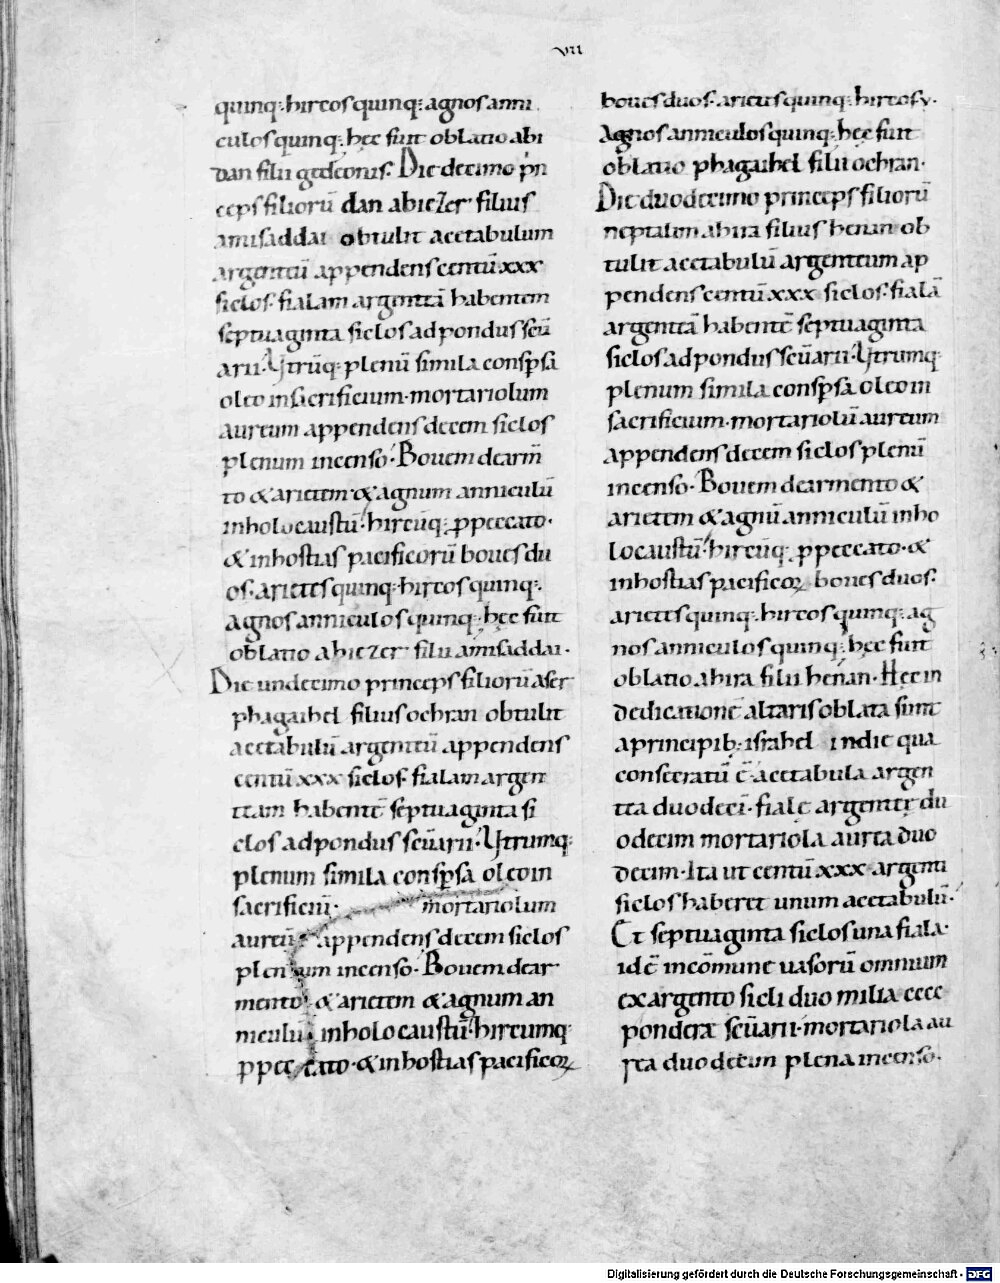 VII
quinq; hircos quinq; agnos anni
culos quinq; hęc sunt oblatio abi
dan filii gedeonis. Die decimo prin
ceps filiorū dan abiezer filius
amisaddai obtulit acetabulum
argenteū appendens centū xxx
siclos. fialam argenteā habentem
septuaginta siclos ad pondus scū
arii. Utrūq; plenū simila conspsa
oleo in sacrificium. mortariolum
aureum appendens decem siclos
plenum incenso. Bovem de arm̄
to & arietem & agnum anniculū
in holocaustū. hircūq; ppeccato.
& in hostias pacificorū boves du
os. arietes quinq; hircos quinq;
agnos anniculos quinq; hęc sunt
oblatio abiezer filii amisaddai.
Die undecimo princeps filiorū aser
phagaihel filius ochran obtulit
acetabulū argenteū appendens
centū xxx siclos. fialam argen
team habentē septuaginta si
clos ad pondus scūarii. Utrumq;
plenum simila conspsa oleo in
sacrificiū. mortariolum
aureū appendens decem siclos
plenum incenso. Bovem de ar
mento & arietem & agnum an
niculū in holocaustū. hircumq;
ppeccato. & in hostias pacificoꝝ
boves duos. arietes quinq; hircos v.
Agnos anniculos quinq; hęc sunt
oblatio phagaihel filii ochran.
Die duodecimo princeps filiorū
neptalim ahira filius henan ob
tulit acetabulū argenteum ap
pendens centū xxx siclos. fialā
argenteā habentē septuaginta
siclos ad pondus scūarii. Utrumq;
plenum simila conspsa oleo in
sacrificium. mortariolū aureum
appendens decem siclos plenū
incenso. Bovem de armento &
arietem & agnū anniculū in ho
locaustū. hircūq; ppeccato. &
in hostias pacificoꝝ boves duos.
arietes quinq; hircos quinq; ag
nos anniculos quinq; hęc sunt
oblatio ahira filii henan. Hęc in
dedicatione altaris oblata sunt
a principib; israhel in die qua
consecratū ē. acetabula argen
tea duodeci. fialę argenteę du
odecim mortariola aurea duo
decim. Ita ut centū xxx argenti
siclos haberet unum acetabulū.
Et septuaginta siclos una fiala.
id ē in cōmune vasorū omnium
ex argento sicli duo milia cccc
pondere scūarii. mortariola au
rea duodecim plena incenso.
Digitalisierung gefördert durch die Deutsche Forschungsgemeinschaft - DFG